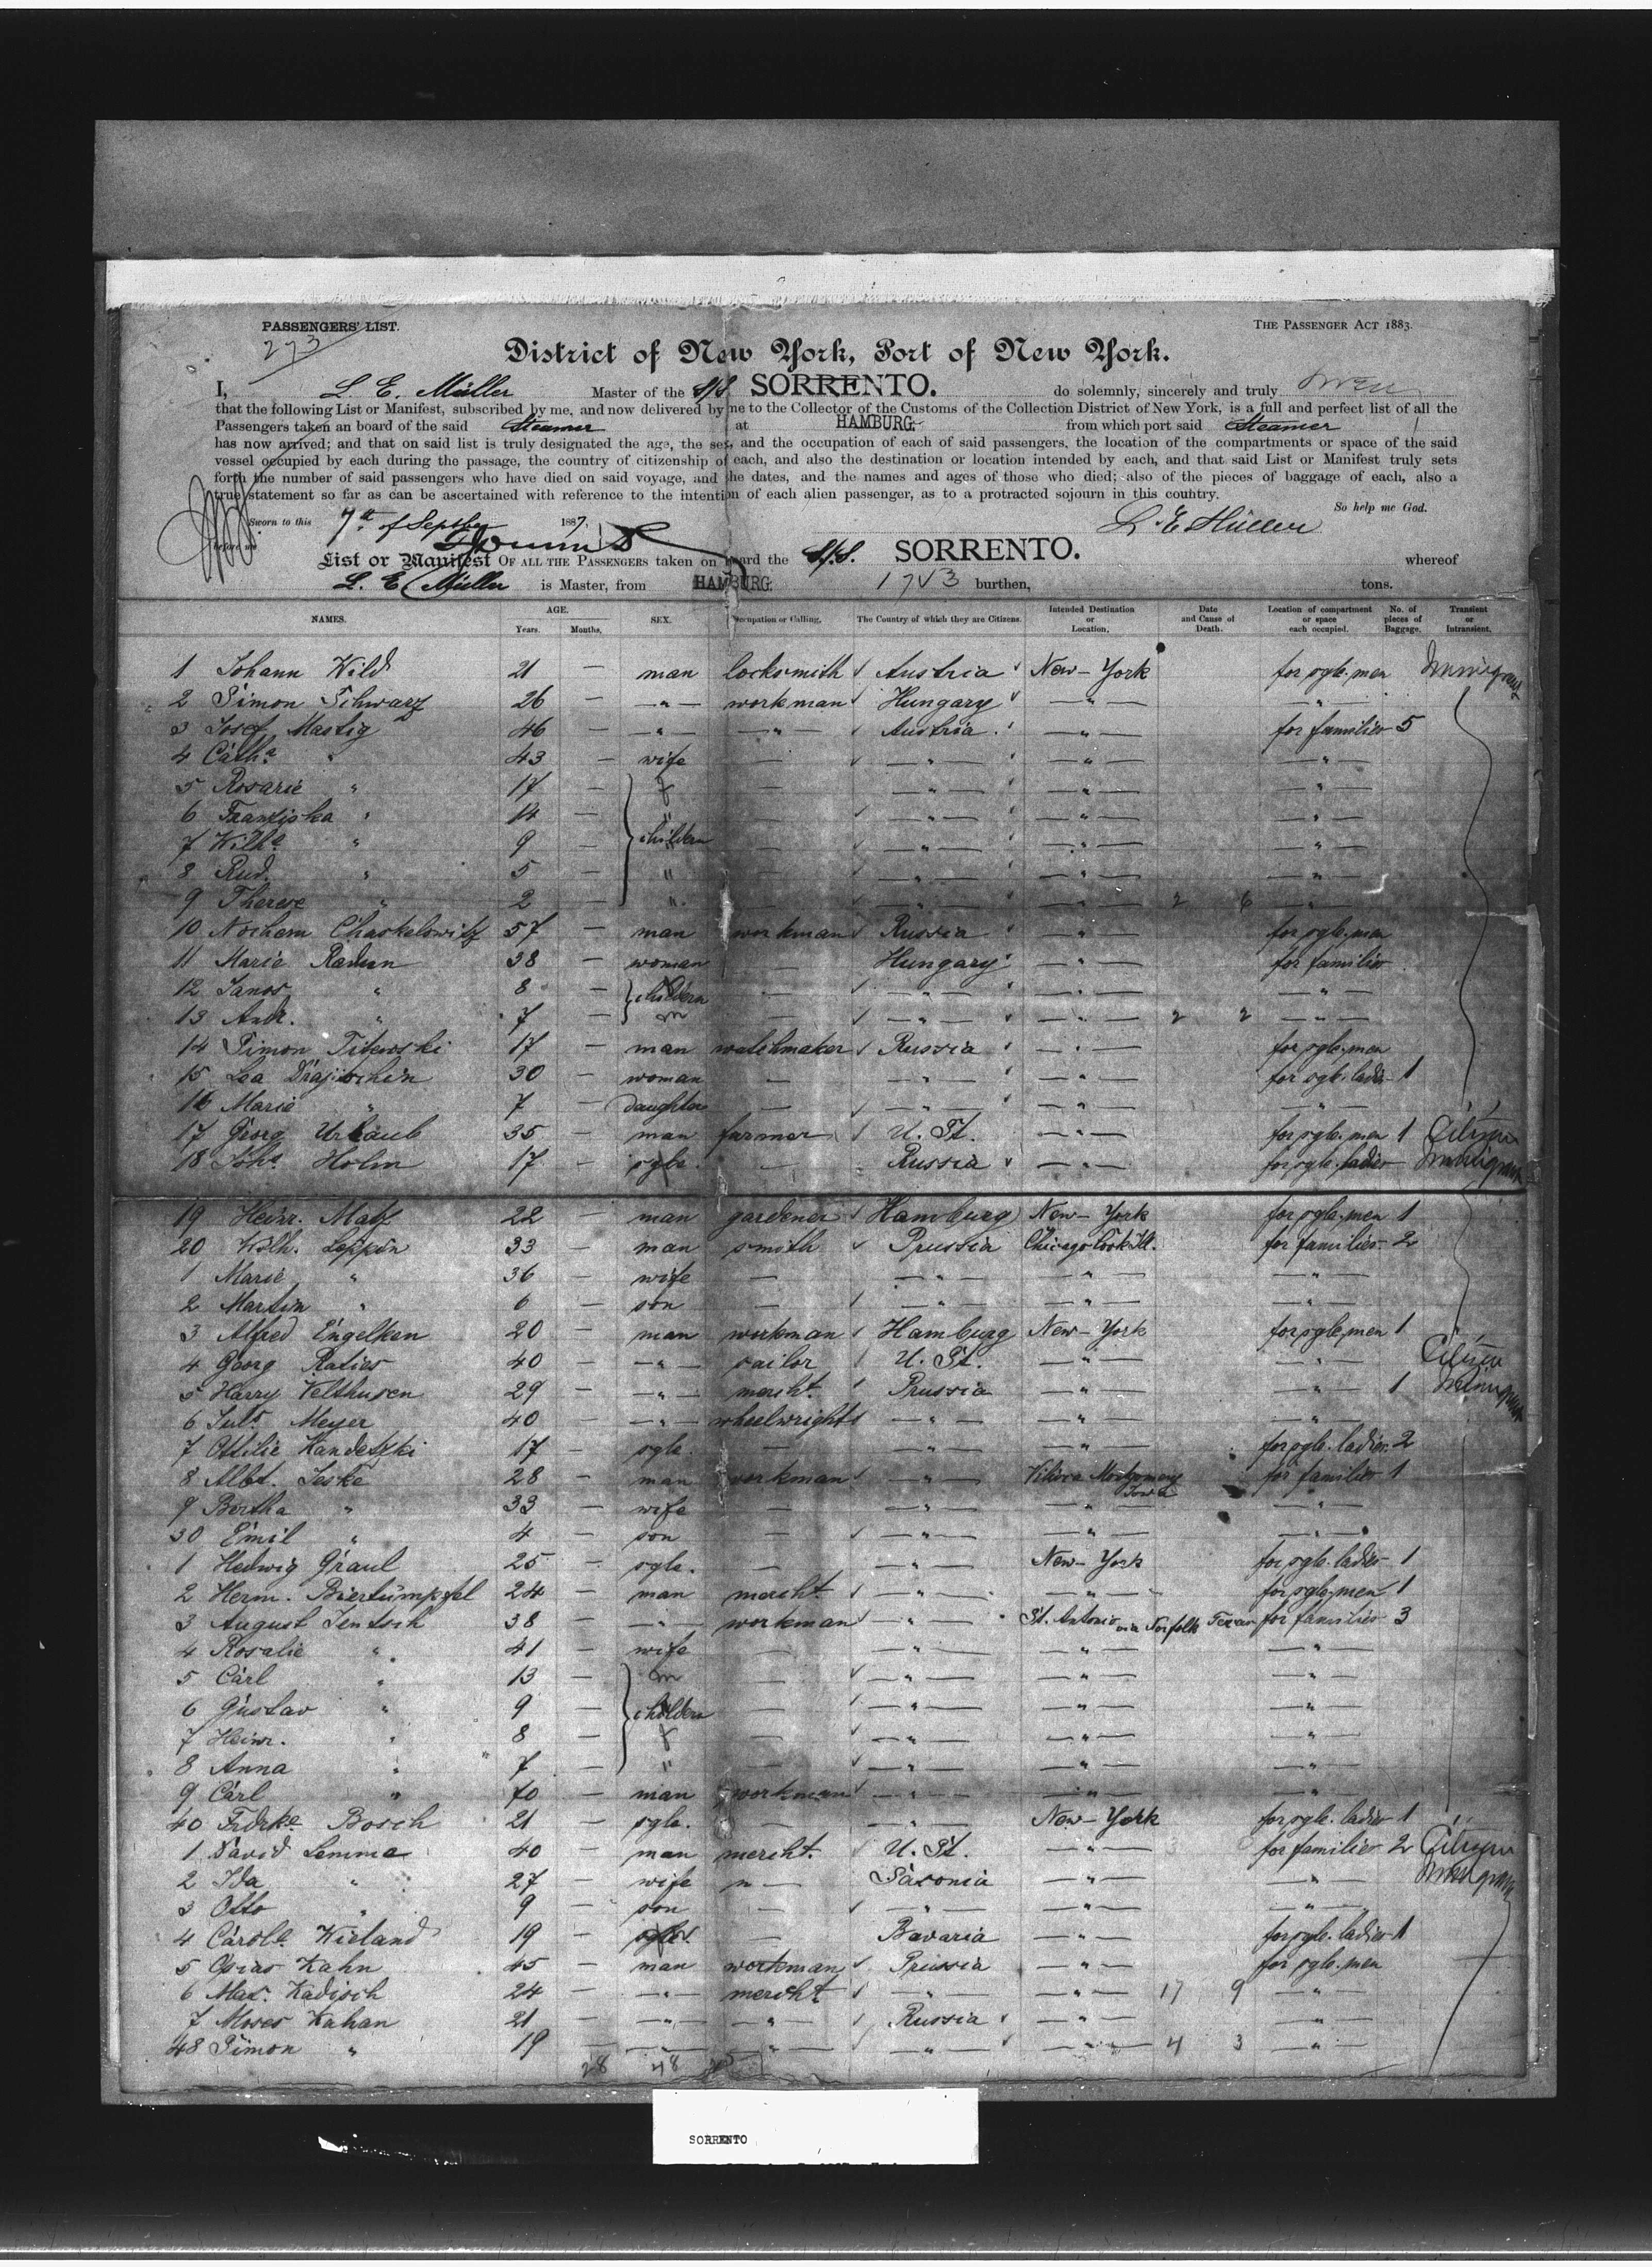 PASSENGERS' LIST. THE PASSENGER ACT 1883.
273
District of New York, Port of New York.
I, L. E. Müller Master of the S/S. SORRENTO. do solemnly, sincerely and truly
that the following List or Manifest, subscribed by me, and now delivered by me to the Collector of the Customs of the Collection District of New York, is a full and perfect list of all the
Passengers taken an board of the said Steamer at HAMBURG. from which port said Steamer
has now arrived; and that on said list is truly designated the age, the sex, and the occupation of each of said passengers, the location of the compartments or space of the said
vessel occupied by each during the passage, the country of citizenship of each, and also the destination or location intended by each, and that said List or Manifest truly sets
forth the number of said passengers who have died on said voyage, and the dates, and the names and ages of those who died; also of the pieces of baggage of each, also a
true statement so far as can be ascertained with reference to the intention of each alien passenger, as to a protracted sojourn in this country.
So help me God.
Sworn to this 7th of Septber 1887, L. E. Müller
before me
List or Manifest OF ALL THE PASSENGERS taken on board the S/S. SORRENTO. whereof
L. E. Müller is Master, from HAMBURG. 1743 burthen, tons.
NAMES. AGE. Years. Months. SEX. Occupation or Calling. The Country of which they are Citizens. Intended Destination or Location. Date and Cause of Death. Location of compartment or space each occupied. No. of pieces of Baggage. Transient or Intransient.
1 Johann Wild 21 — man locksmith Austria New-York for sgle. men Immigrant
2 Simon Schwarz 26 — —"— workman Hungary —"— —"—
3 Josef Mastig 46 — —"— —"— Austria —"— for families 5
4 Catha. " 43 — wife — —"— —"— —"—
5 Rosarie " 17 — f — —"— —"— —"—
6 Franziska " 14 — " — —"— —"— —"—
7 Wilha. " 9 — children — —"— —"— —"—
8 Rud. " 5 — " — —"— —"— —"—
9 Therese " 2 — " — —"— —"— 2 6 —"—
10 Nochem Chaskelowitz 57 — man workman Russia —"— for sgle. men
11 Marie Radun 38 — woman — Hungary —"— for families
12 Janos " 8 — children — —"— —"— —"—
13 Andr. " 7 — m — —"— —"— 2 2 —"—
14 Simon Titewski 17 — man watchmaker Russia —"— for sgle. men
15 Lea 30 — woman — —"— —"— for sgle. ladies 1
16 Marie " 7 — daughter — —"— —"— —"—
17 Georg Urlaub 35 — man farmer U. St. —"— for sgle. men 1 Citizen
18 Joha. Holm 17 — sgle. — Russia —"— for sgle. ladies Immigrant
19 Heinr. Matz 22 — man gardener Hamburg New-York for sgle. men 1
20 Wilh. Leppin 33 — man smith Prussia Chicago Cook Ill. for families 2
1 Marie " 36 — wife — —"— —"— —"—
2 Martin " 6 — son — —"— —"— —"—
3 Alfred Engelken 20 — man workman Hamburg New-York for sgle. men 1
4 Georg Raties 40 — —"— sailor U. St. —"— —"— Citizen
5 Harry Velthusen 29 — —"— mercht. Prussia —"— —"— 1 Immigrant
6 Juls. Meyer 40 — —"— wheelwright —"— —"— —"—
7 Ottilie Kandetzki 17 — sgle. — —"— —"— for sgle. ladies 2
8 Albt. Jeske 28 — man workman —"— Montgomery Iowa for families 1
9 Bertha " 33 — wife — —"— —"— —"—
30 Emil " 4 — son — —"— —"— —"—
1 Hedwig Graul 25 — sgle. — —"— New-York for sgle. ladies 1
2 Herm. Biertümpfel 24 — man mercht. —"— —"— for sgle. men 1
3 August Jentsch 38 — —"— workman —"— St. Antonio via Norfolk Texas for families 3
4 Rosalie " 41 — wife — —"— —"— —"—
5 Carl " 13 — m — —"— —"— —"—
6 Gustav " 9 — children — —"— —"— —"—
7 Heinr. " 8 — f — —"— —"— —"—
8 Anna " 7 — " — —"— —"— —"—
9 Carl " 70 — man workman —"— —"— —"—
40 Frdrke. Bosch 21 — sgle. — —"— New-York for sgle. ladies 1
1 David Lemma 40 — man mercht. U. St. —"— for families 2 Citizen
2 Ida " 27 — wife — Saxonia —"— —"— Immigrant
3 Otto " 9 — son — —"— —"— —"—
4 Carole. Wieland 19 — sgle. — Bavaria —"— for sgle. ladies 1
5 Kahn 45 — man workman Prussia —"— for sgle. men
6 Max. Kadisch 24 — —"— mercht. —"— —"— 17 9 —"—
7 Moses Kahan 21 — —"— —"— Russia —"— —"—
48 Simon " 19 — —"— —"— —"— —"— 4 3 —"—
28 48
SORRENTO